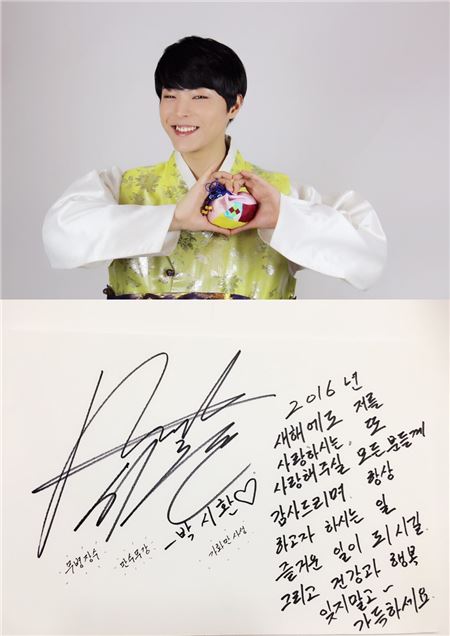 2016년
새해에도 저를
사랑하시는, 또
사랑해주실 모든분들께
감사드리며 항상
하고자 하시는 일
즐거운 일이 되시길
그리고 건강과 행복
잊지말고~
가득하세요
-박시환♡
무병장수 만수무강